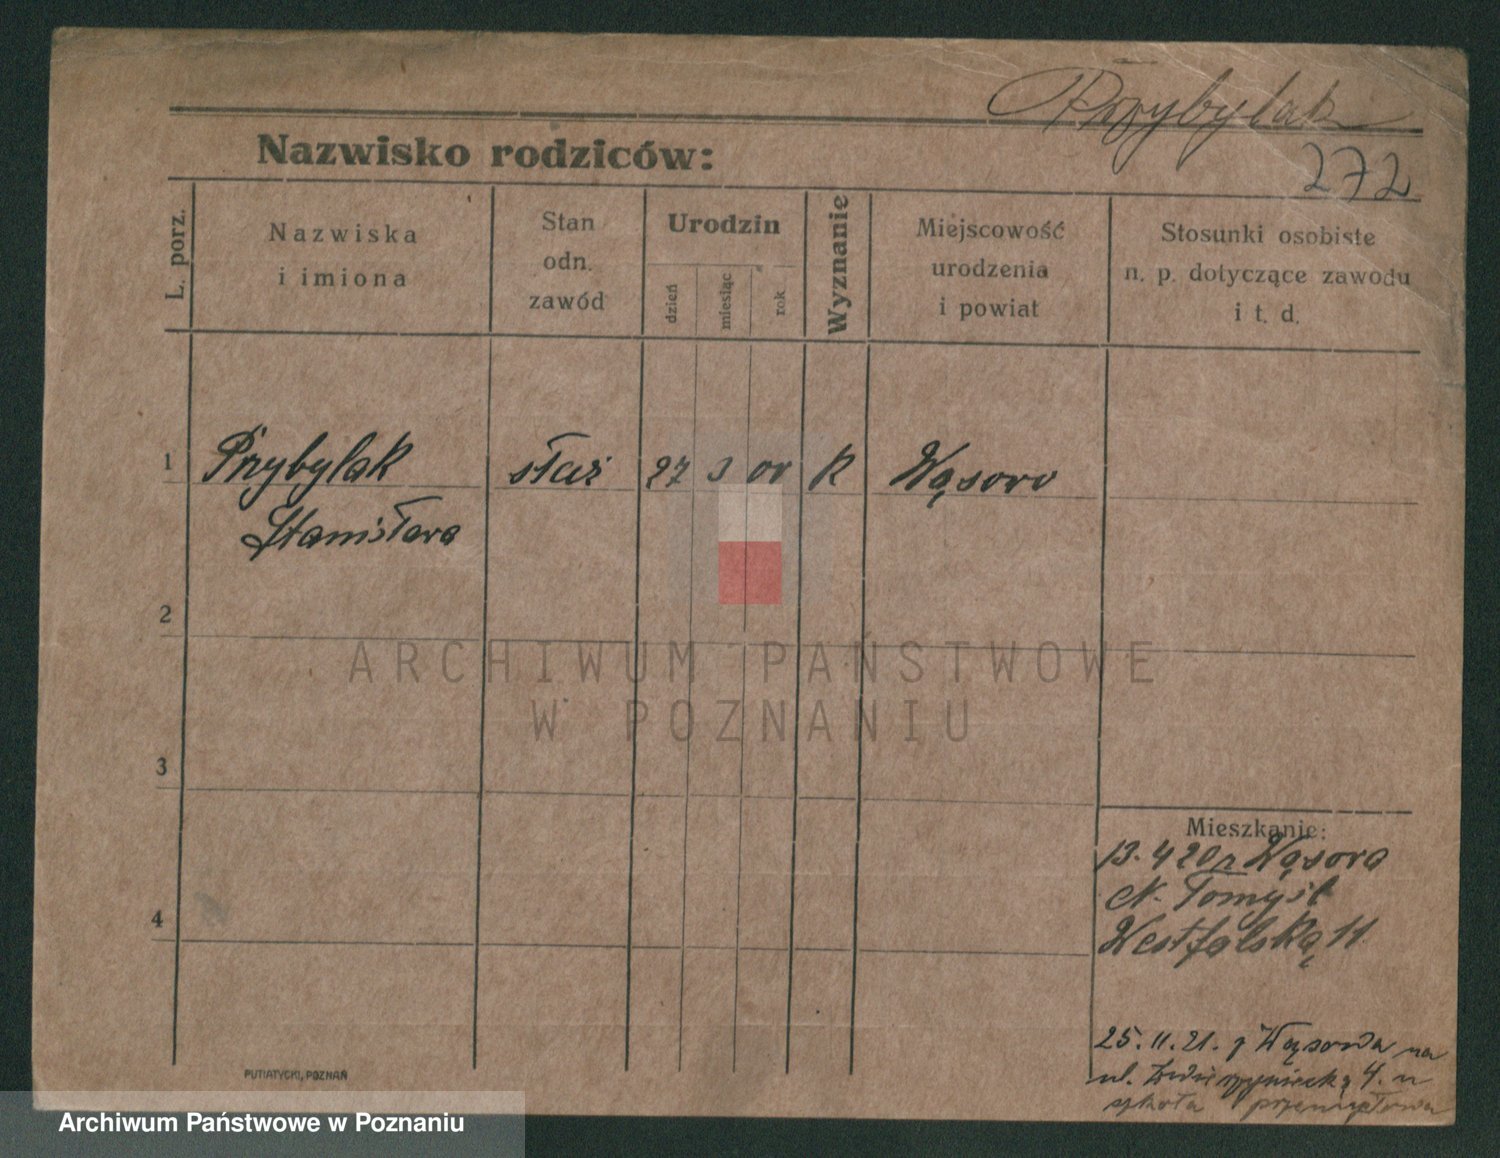 Przybylak
272
Nazwisko rodziców:
L. porz.
Nazwiska
i imiona
Stan
odn.
zawód
Urodzin
dzień
miesiąc
rok
Wyznanie
Miejscowość
urodzenia
i powiat
Stosunki osobiste
n. p. dotyczące zawodu
i t. d.
1 Przybylak służ 27 3 00 k Wąsowo
Stanisława
2
ARCHIWUM PAŃSTWOWE
W POZNANIU
3
Mieszkanie:
13. 4 20 z Wąsowa
N. Tomyśl
Westfalską 11
4
25. 11. 21. z Wąsowa na
ul. 4. u
szkoła przemysłowa
PUTIATYCKI, POZNAŃ
Archiwum Państwowe w Poznaniu